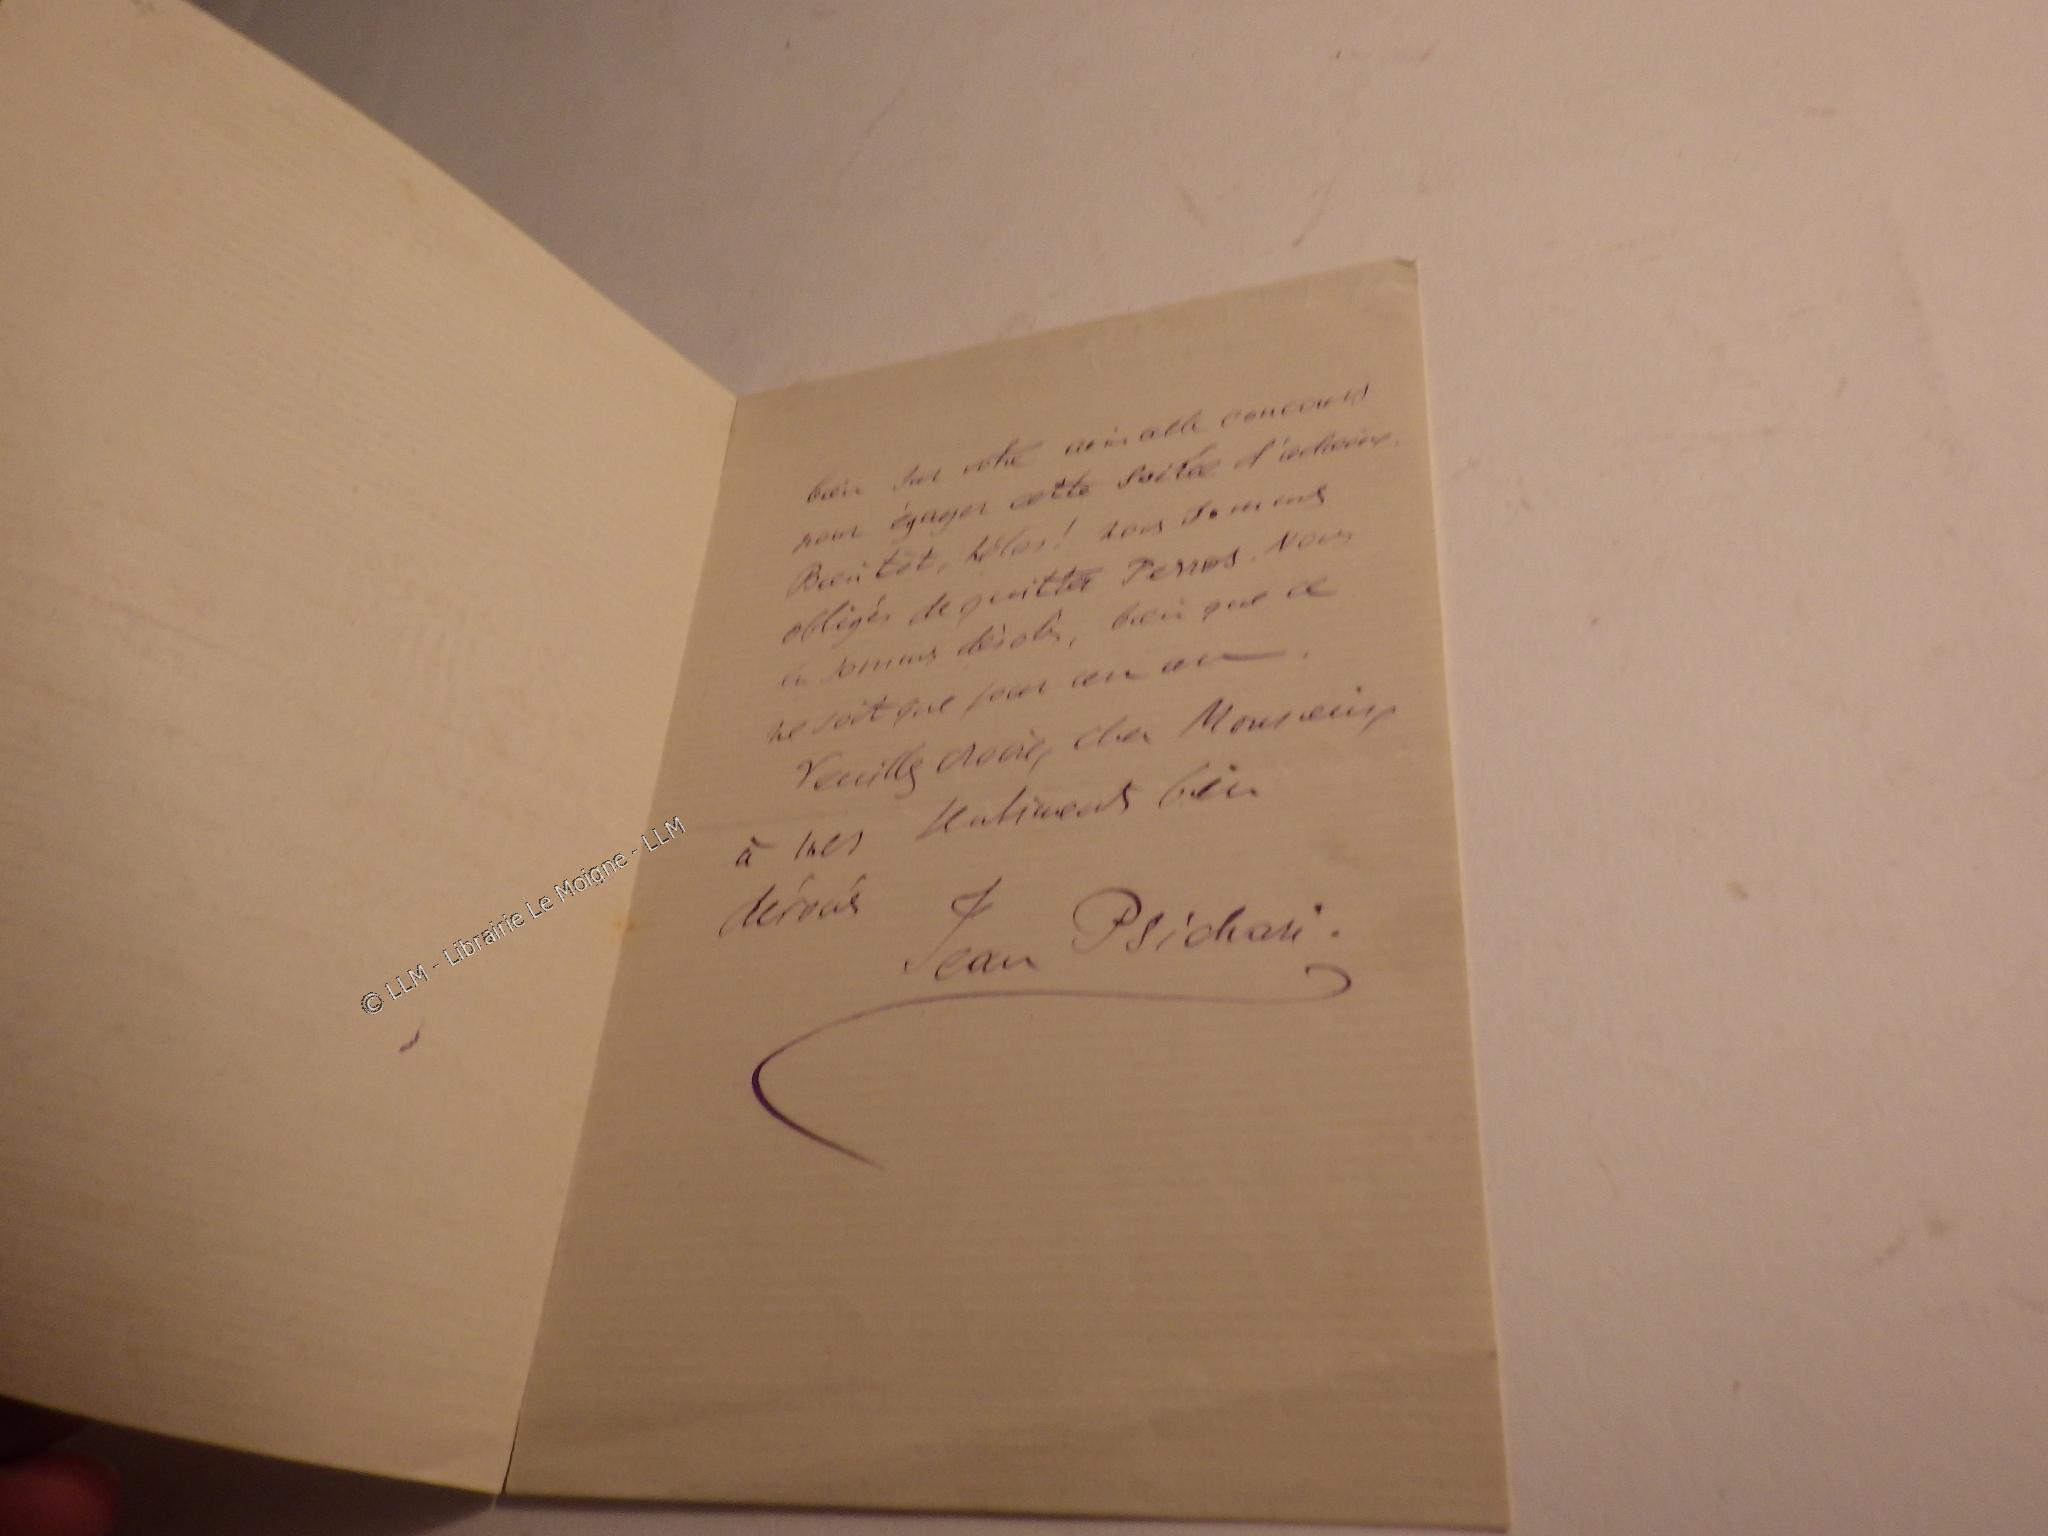 bien sur votre aimable concours
pour égayer cette soirée d'adieux.
Bientôt, hélas! nous sommes
obligés de quitter Perros. Nous
en sommes désolés, bien que ce
ne soit que pour un an.
Veuillez croire, cher Monsieur,
à mes sentiments bien
dévoués Jean Psichari.
© LLM - Librairie Le Moigne - LLM